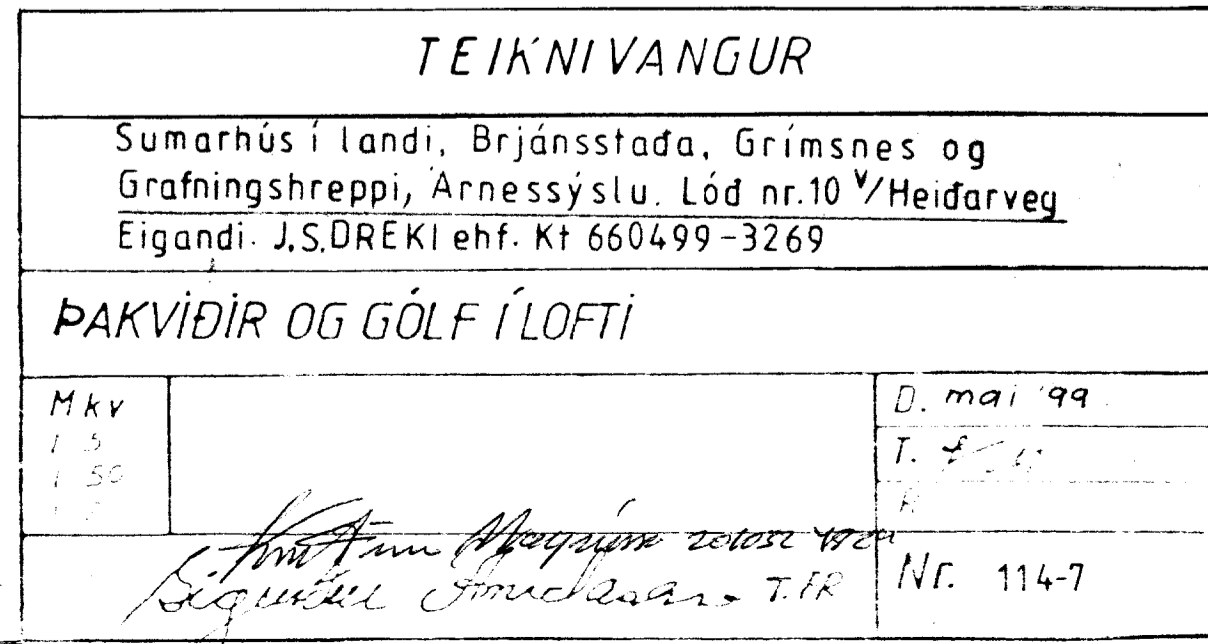 TEIKNIVANGUR
Sumarhús í landi, Brjánsstaða, Grímsnes og
Grafningshreppi, Árnessýslu. Lóð nr.10 v/Heiðarveg
Eigandi. J.S.DREKI ehf. Kt 660499-3269
ÞAKVIÐIR OG GÓLF Í LOFTI
Mkv
1 5
1 50
D. mai '99
T.
T.FR
Nr. 114-7